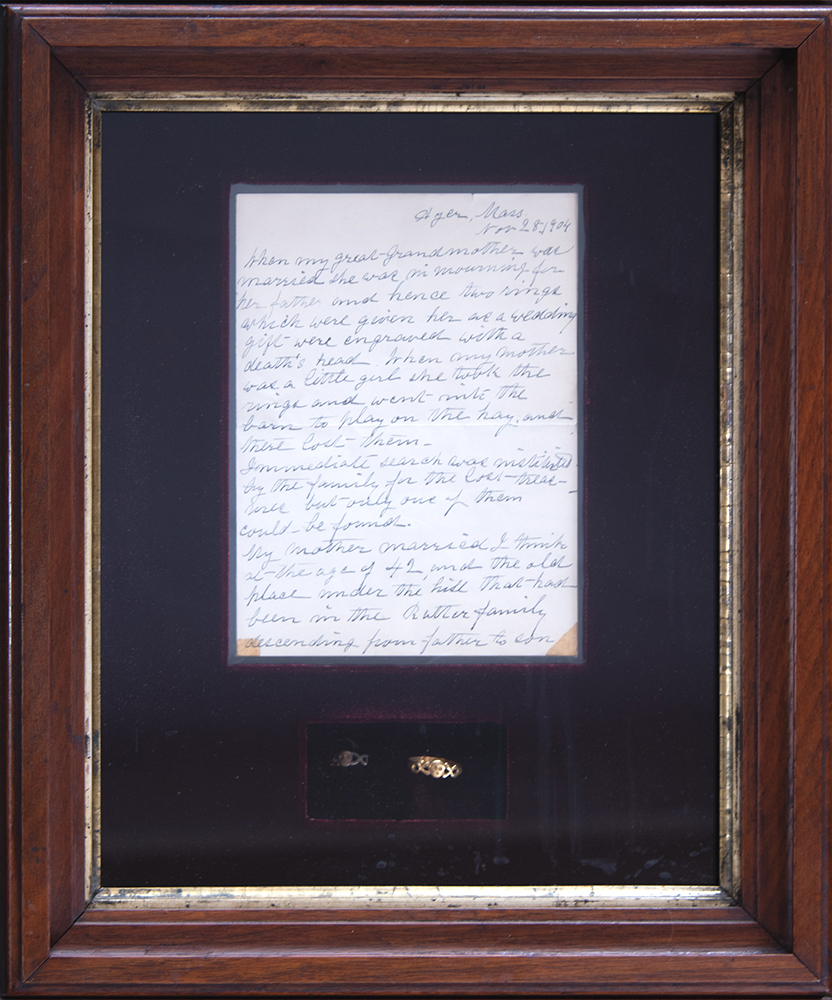 Ayer, Mass.
Nov 28, 1904
When my great-Grandmother was
married she was in mourning for
her father and hence two rings
which were given her as a wedding
gift were engraved with a
death's head. When my mother
was a little girl she took the
rings and went into the
barn to play on the hay, and
there lost them—
Immediate search was instituted
by the family for the lost treas-
ures but only one of them
could be found.
My mother married I think
at the age of 42, and the old
place under the hill that had
been in the Rutter family
descending from father to son